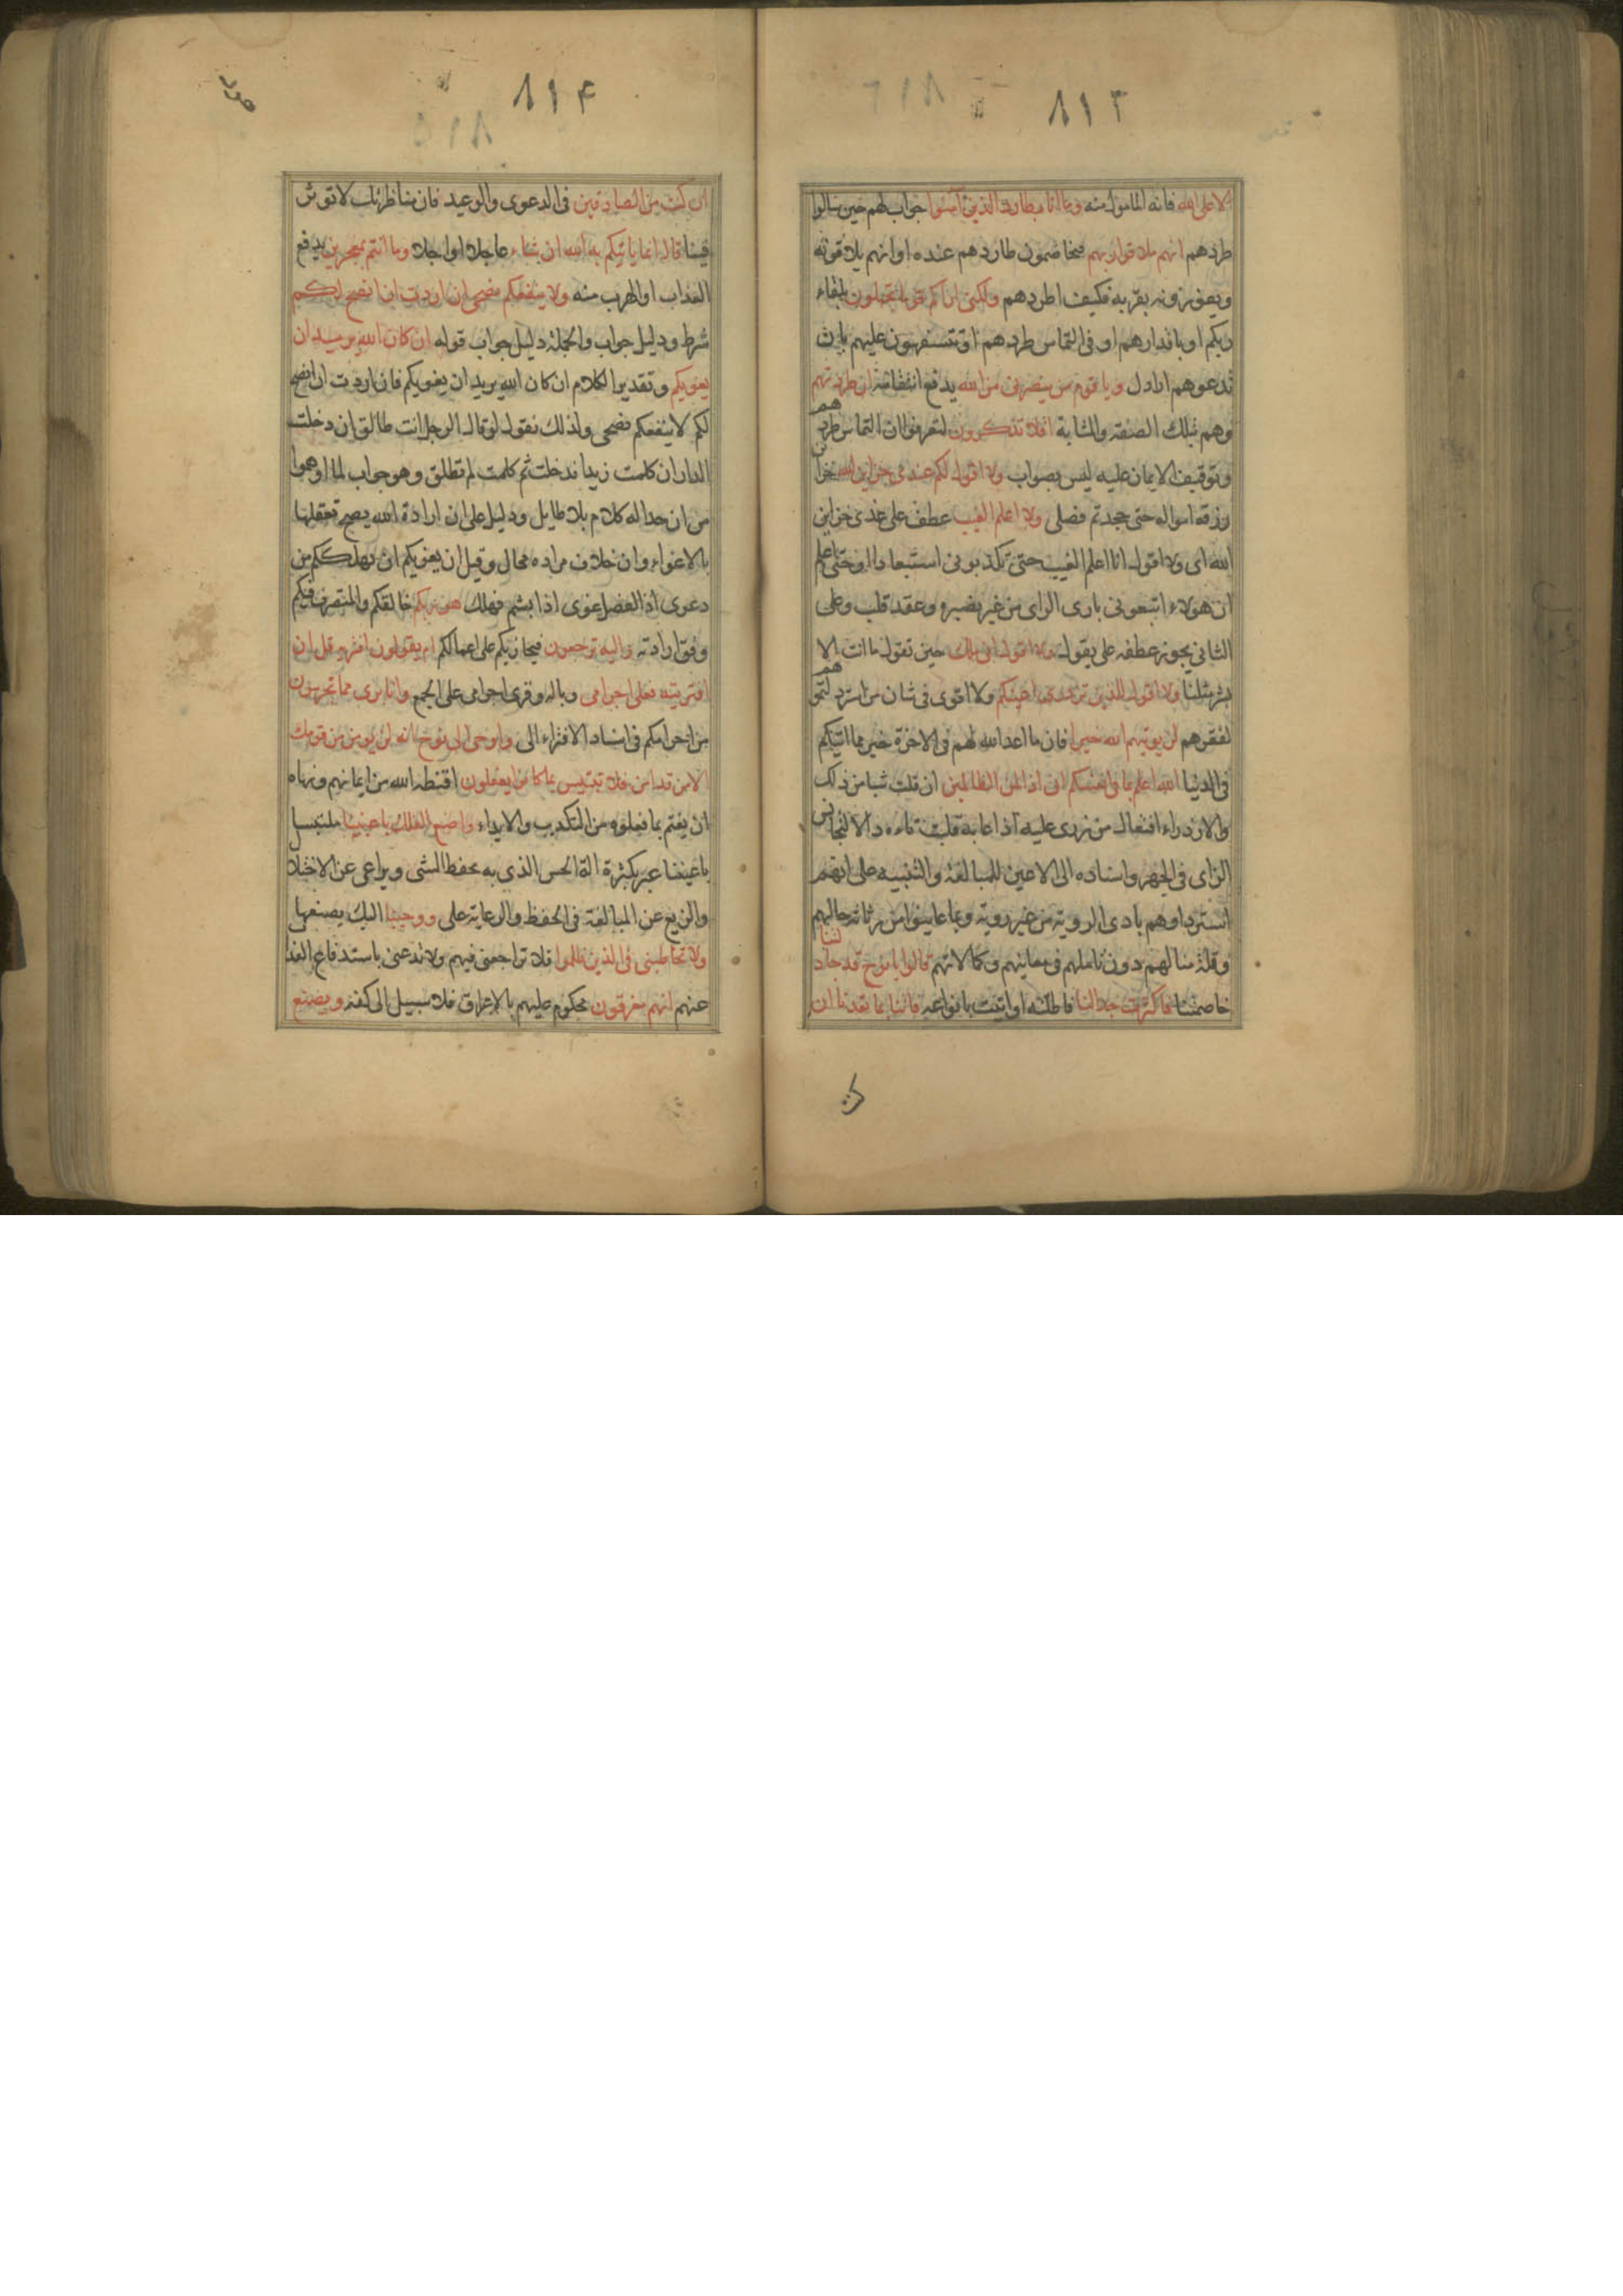 ٨١٣
الا على الله فانه المامول منه وما انا بطارد الذين آمنوا جواب لهم حين سالوا
طردهم انهم ملاقوا ربهم فيخاصمون طاردهم عنده او انهم يلاقونه
ويفوزون بقربه فكيف اطردهم ولكنى اراكم قوما تجهلون بلقاء
ربكم او باقدارهم او فى التماس طردهم او تتسفهون عليهم بان
تدعوهم اراذل ويا قوم من ينصرنى من الله يدفع انتقامه ان طردتهم
وهم بتلك الصفة والمثابة افلا تذكرون لتعرفوا ان التماس طردهم
وتوقيف الايمان عليه ليس بصواب ولا اقول لكم عندى خزاين الله خزاين
رزقه امواله حتى جحدتم فضلى ولا اعلم الغيب عطف على عندى خزاين
الله اى ولا اقول انا اعلم الغيب حتى تكذبونى استبعادا او حتى اعلم
ان هولاء اتبعونى بادى الراى من غير بصيرة وعقد قلب وعلى
الثانى يجوز عطفه على يقول ولا اقول انى ملك حين تقول ما انت الا
بشر مثلنا ولا اقول للذين تزدرى اعينكم ولا اقوى فى شان من استرذلتموهم
لفقرهم لن يوتيهم الله خيرا فان ما اعد الله لهم فى الاخرة خير مما اتيكم
فى الدنيا الله اعلم بما فى انفسكم انى اذا لمن الظالمين ان قلت شيا من ذلك
والازدراء افتعال من زرى عليه اذا عابه قلبت تاءه دالا لتجانس
الزاى فى الجهر واسناده الى الاعين للمبالغة والتنبيه على انهم
استرذلوهم بادى الروية من غير روية وبما عاينوا من رثاثة حالهم
وقلة منالهم دون تاملهم فى معانيهم وكمالاتهم قالوا يا نوح قد جادلتنا
خاصمتنا فاكثرت جدالنا فاطلته او اتيت بانواعه فاتنا بما تعدنا ان
٨١٤
ان كنت من الصادقين فى الدعوى والوعيد فان مناظرتك لا توثر
فينا قال انما ياتيكم به الله ان شاء عاجلا او اجلا وما انتم بمعجزين بدفع
العذاب او الهرب منه ولا ينفعكم نصحى ان اردت ان انصح لكم
شرط ودليل جواب والجملة دليل جواب قوله ان كان الله يريد ان
يغويكم وتقدير الكلام ان كان الله يريد ان يغويكم فان اردت ان انصح
لكم لا ينفعكم نصحى ولذلك نقول لو قال الرجل انت طالق ان دخلت
الدار ان كلمت زيدا فدخلت ثم كلمت لم تطلق وهو جواب لما اوهموا
من ان جداله كلام بلا طايل ودليل على ان ارادة الله يصح تعقلها
بالاغواء وان خلاف مراده محال وقيل ان يغويكم ان يهلككم من
دعوى اذ الفصل غوى اذا بشم فهلك هو ربكم خالقكم والمتصرف فيكم
وفق ارادته واليه ترجعون فيجازيكم على اعمالكم ام يقولون افتريه قل ان
افتريته فعلى اجرامى وباله وقرى اجرامى على الجمع وانا برى مما تجرمون
من اجرامكم فى اسناد الافتراء الى واوحى الى نوح انه لن يومن من قومك
الا من قد امن فلا تبتئس بما كانوا يفعلون اقنطه الله من ايمانهم ونهاه
ان يغتم بما فعلوه من التكذيب والايذاء واصنع الفلك باعيننا ملتبسا
باعيننا عبر بكثرة الة الحس الذى به يحفظ الشى ويراعى عن الاختلال
والزيغ عن المبالغة فى الحفظ والرعاية على ووحينا اليك يصنعها
ولا تخاطبنى فى الذين ظلموا فلا تراجعنى فيهم ولا تدعنى باستدفاع العذاب
عنهم انهم مغرقون محكوم عليهم بالاغراق فلا سبيل الى كفه ويصنع